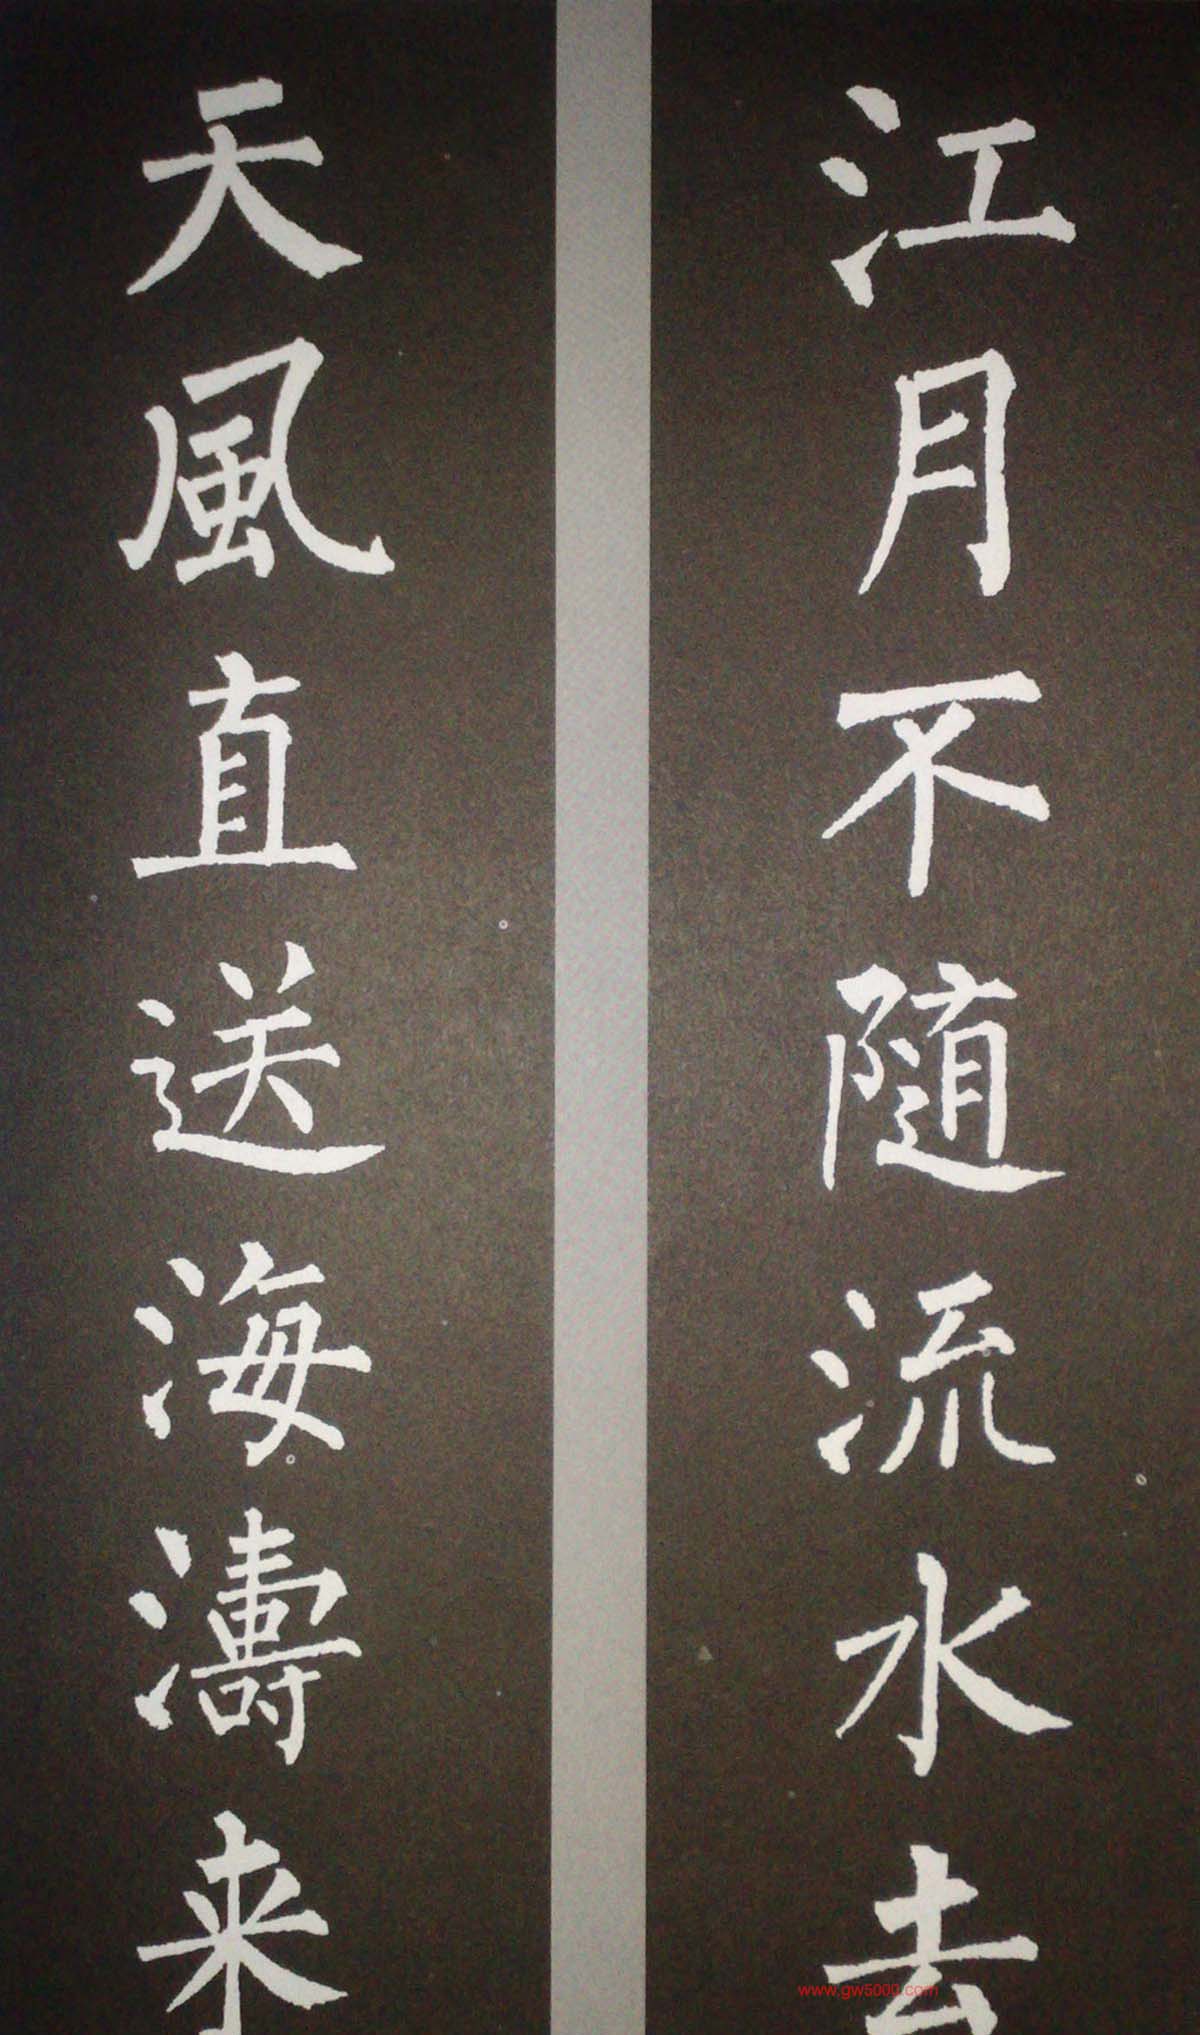 江月不随流水去
天風直送海濤来
www.gw5000.com